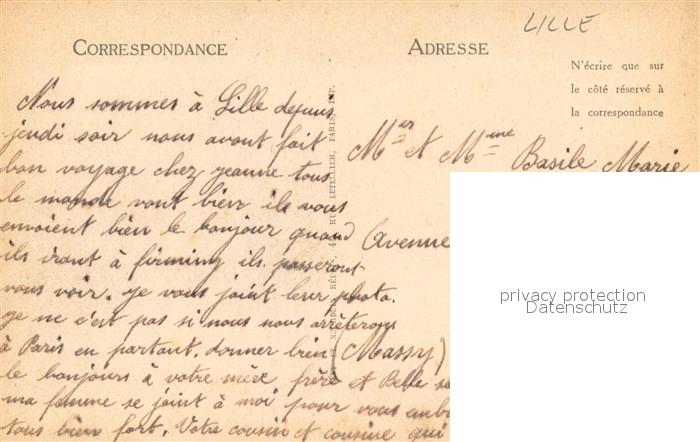 LILLE
CORRESPONDANCE
ADRESSE
N'écrire que sur
le côté réservé à
la correspondance
Nous sommes à Lille depuis
jeudi soir nous avont fait
bon voyage chez jeanne tous
le monde vont bien ils vous
envoient bien le bonjour quand
ils iront à firminy ils passeront
vous voir. je vous joint leur photo.
je ne c'est pas si nous nous arrêterons
à Paris en partant. donner bien
le bonjours à votre mère frère et Belle
ma femme se joint à moi pour vous
tous bien fort. Votre cousin et cousine qui
Mer et Mme Basile Marie
Avenue
(Massy)
RUE LETELLIER, PARIS, IMP.
privacy protection
Datenschutz